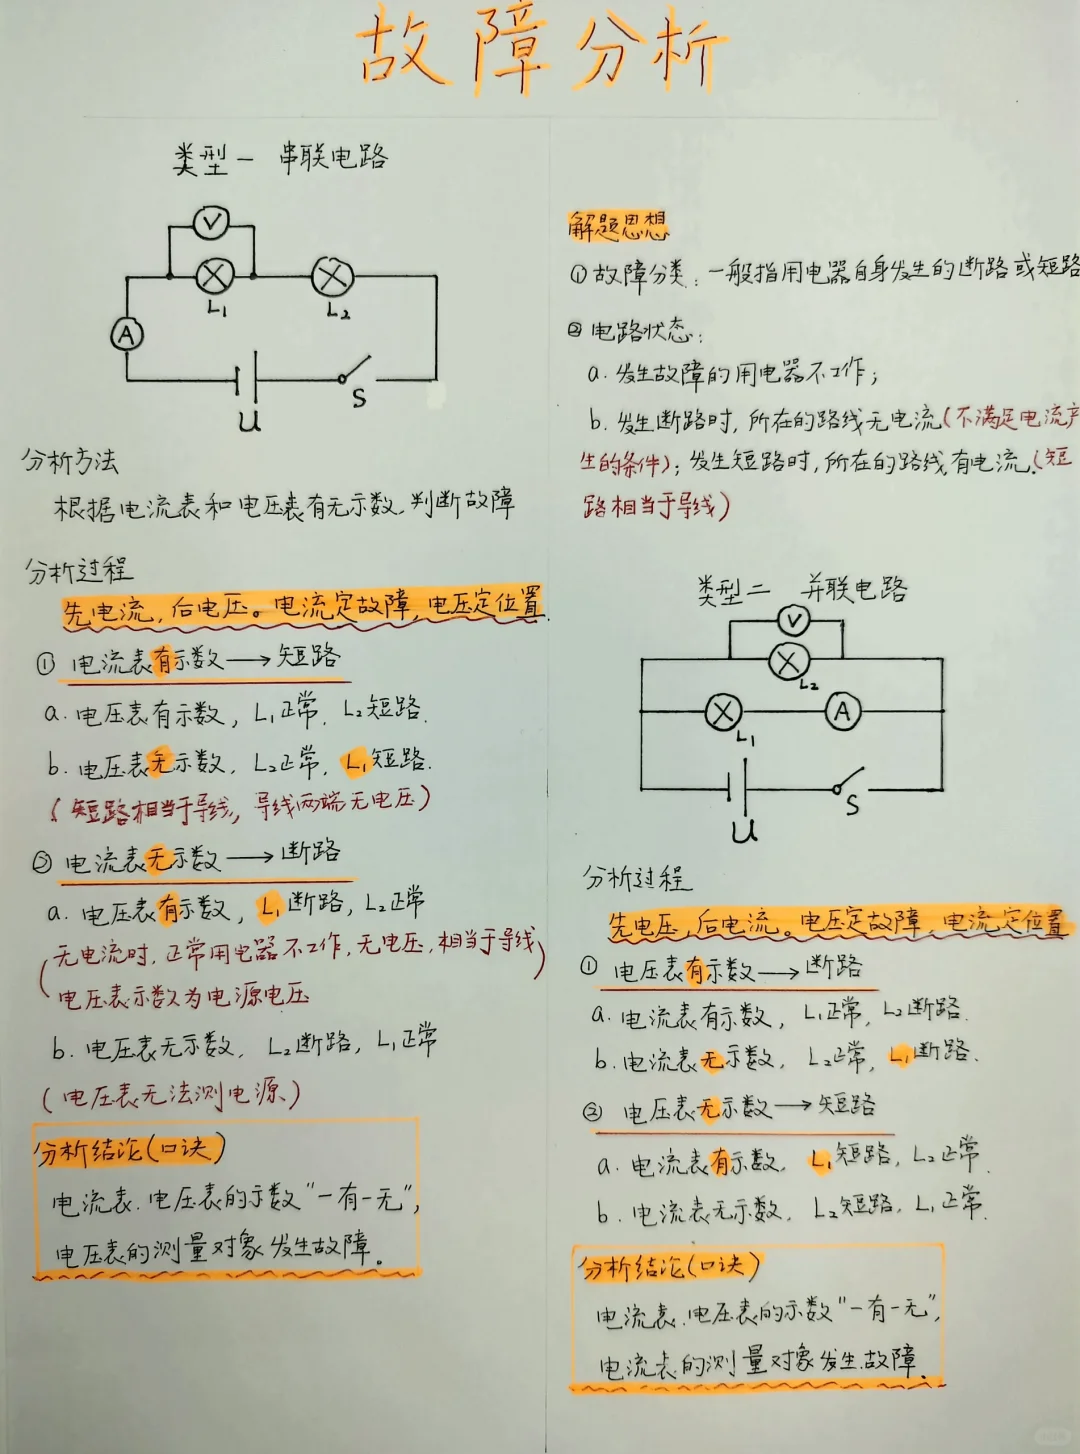 故障分析
类型一 串联电路
V
L₁
L₂
A
U
S
分析方法
根据电流表和电压表有无示数,判断故障
分析过程
先电流,后电压。电流定故障,电压定位置.
① 电流表有示数→短路
a. 电压表有示数, L₁正常, L₂短路.
b. 电压表无示数, L₂正常, L₁短路.
(短路相当于导线, 导线两端无电压)
② 电流表无示数→断路
a. 电压表有示数, L₁断路, L₂正常
(无电流时, 正常用电器不工作, 无电压, 相当于导线
电压表示数为电源电压)
b. 电压表无示数, L₂断路, L₁正常
(电压表无法测电源)
分析结论(口诀)
电流表、电压表的示数"一有一无",
电压表的测量对象发生故障。
解题思想
① 故障分类: 一般指用电器自身发生的断路或短路
② 电路状态:
a. 发生故障的用电器不工作;
b. 发生断路时, 所在的路线无电流(不满足电流产
生的条件); 发生短路时, 所在的路线有电流.(短
路相当于导线)
类型二 并联电路
V
L₂
L₁
A
U
S
分析过程
先电压,后电流。电压定故障,电流定位置
① 电压表有示数→断路
a. 电流表有示数, L₁正常, L₂断路.
b. 电流表无示数, L₂正常, L₁断路.
② 电压表无示数→短路
a. 电流表有示数, L₁短路, L₂正常.
b. 电流表无示数, L₂短路, L₁正常.
分析结论(口诀)
电流表、电压表的示数"一有一无",
电流表的测量对象发生故障.